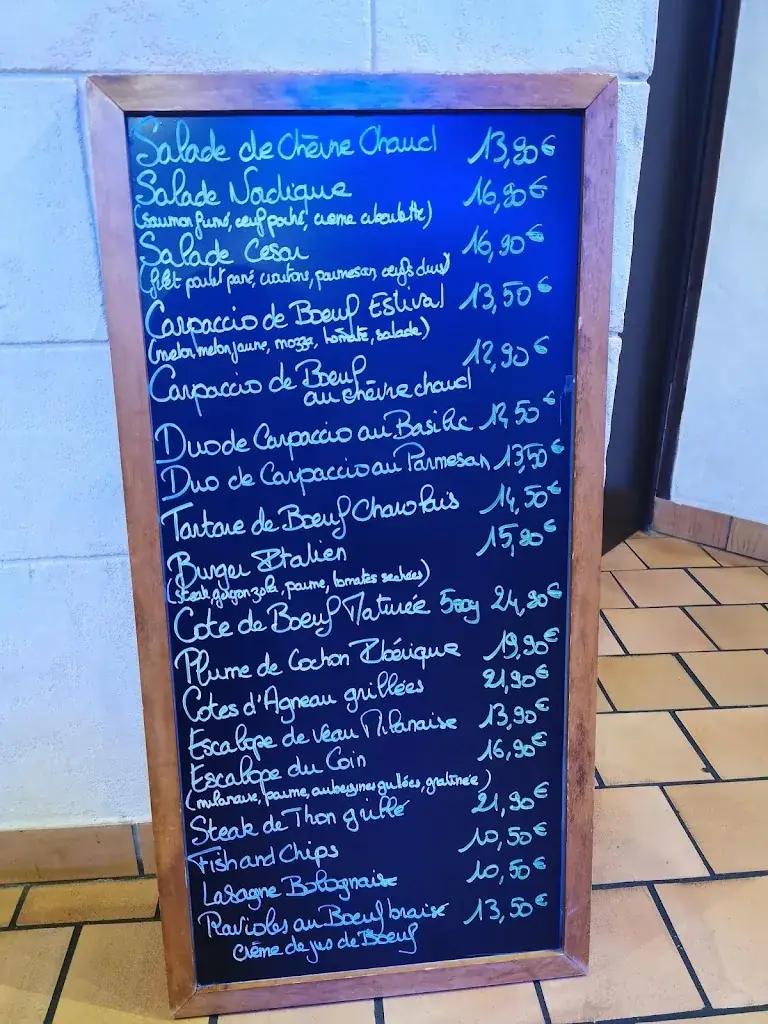 Salade de Chèvre Chaud 13,90€
Salade Nordique 16,90€
(saumon fumé, œuf poché, crème ciboulette)
Salade César 16,90€
(filet poulet pané, croutons, parmesan, œufs durs)
Carpaccio de Boeuf Estival 13,50€
(melon, melon jaune, mozza, tomate, salade)
Carpaccio de Boeuf 12,90€
au chèvre chaud
Duo de Carpaccio au Basilic 12,50€
Duo de Carpaccio au Parmesan 13,50€
Tartare de Boeuf Charolais 14,50€
Burger Italien 15,90€
(steak, gorgonzola, parme, tomates sechées)
Cote de Boeuf Maturée 500g 24,90€
Plume de Cochon Ibérique 19,90€
Cotes d'Agneau grillées 21,90€
Escalope de veau Milanaise 13,90€
Escalope du Coin 16,90€
(milanaise, parme, aubergines grillées, gratinée)
Steak de Thon grillé 21,90€
Fish and Chips 10,50€
Lasagne Bolognaise 10,50€
Ravioles au Boeuf braisé 13,50€
crème de jus de Boeuf